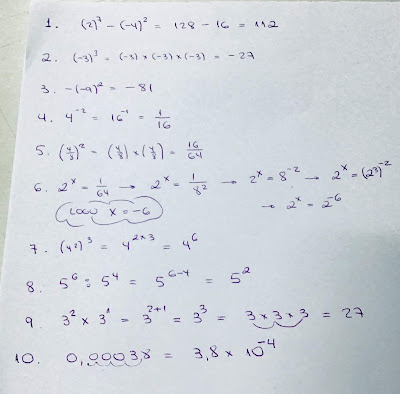 1. (2)⁷ - (-4)² = 128 - 16 = 112
2. (-3)³ = (-3) x (-3) x (-3) = -27
3. -(-9)² = -81
4. 4⁻² = 16⁻¹ = 1/16
5. (4/8)² = (4/8) x (4/8) = 16/64
6. 2ˣ = 1/64 → 2ˣ = 1/8² → 2ˣ = 8⁻² → 2ˣ = (2³)⁻²
LOGO X = -6 → 2ˣ = 2⁻⁶
7. (4²)³ = 4²ˣ³ = 4⁶
8. 5⁶ : 5⁴ = 5⁶⁻⁴ = 5²
9. 3² x 3¹ = 3²⁺¹ = 3³ = 3 x 3 x 3 = 27
10. 0,00038 = 3,8 x 10⁻⁴